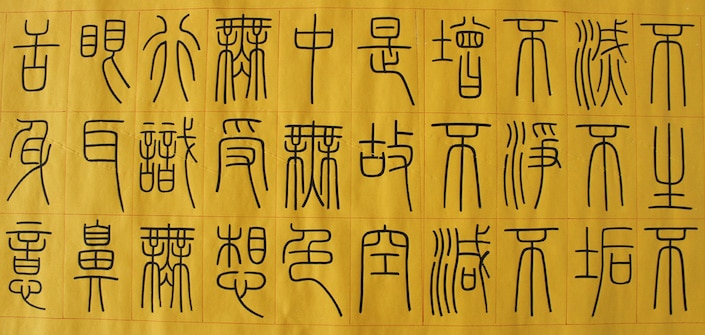 不生不
滅不垢
不淨不
增不減
是故空
中無色
無受想
行識無
眼耳鼻
舌身意